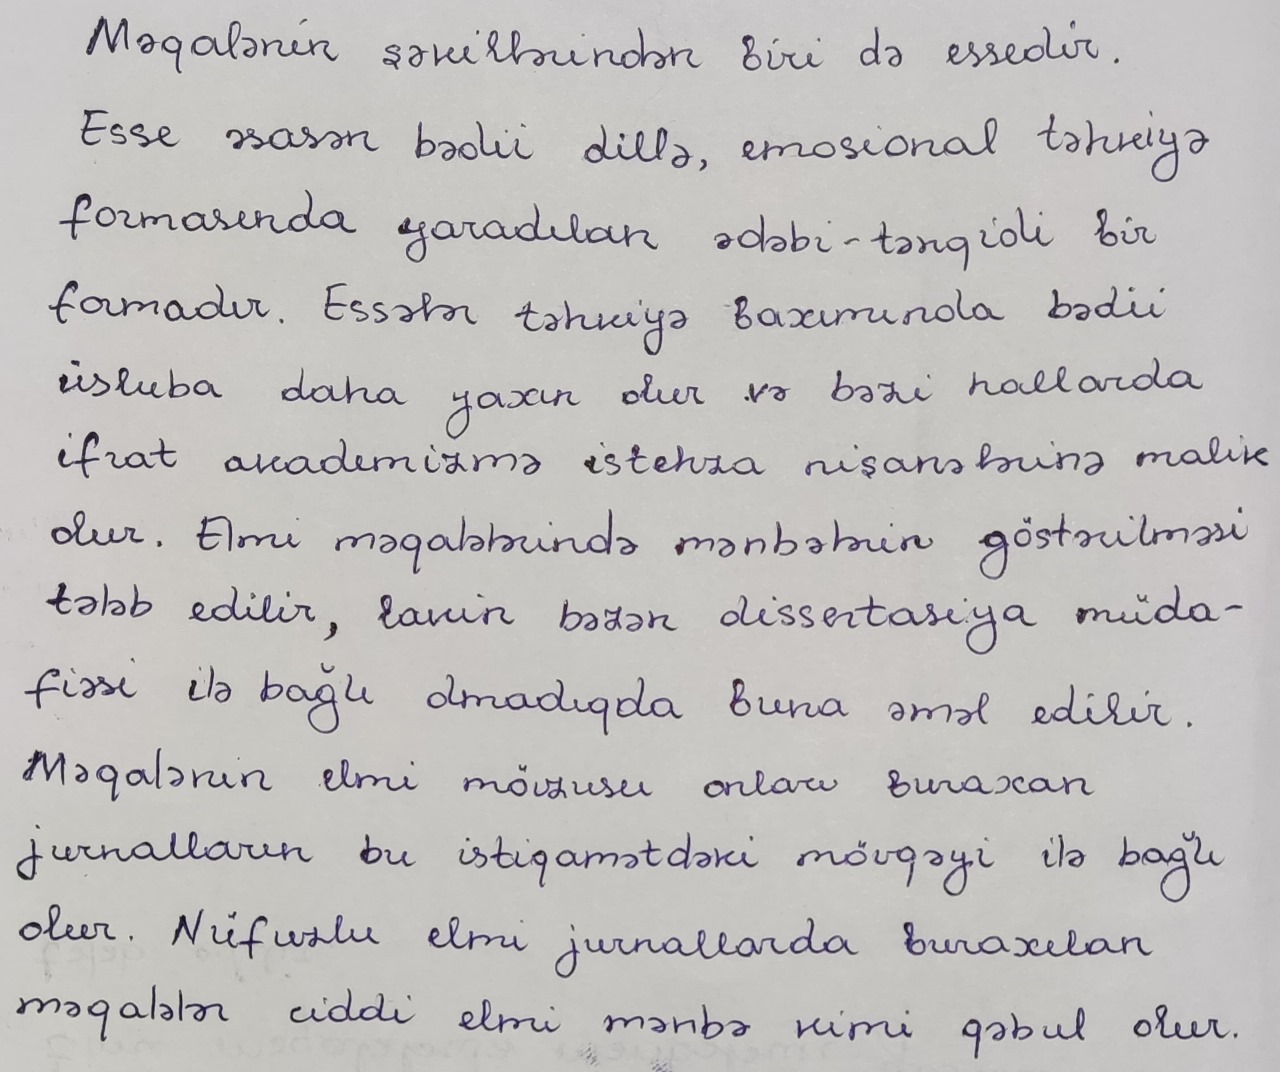 Məqalənin şəkillərindən biri də essedir.
Esse əsasən bədii dillə, emosional təhkiyə
formasında yaradılan ədəbi-tənqidi bir
formadır. Essələr təhkiyə baxımında bədii
üsluba daha yaxın olur və bəzi hallarda
ifrat akademizmə istehza nişanələrinə malik
olur. Elmi məqalələrində mənbələrin göstərilməsi
tələb edilir, lakin bəzən dissertasiya müda-
fiəsi ilə bağlı olmadıqda buna əməl edilir.
Məqalənin elmi mövzusu onları buraxan
jurnalların bu istiqamətdəki mövqəyi ilə bağlı
olur. Nüfuzlu elmi jurnallarda buraxılan
məqalələr ciddi elmi mənbə kimi qəbul olur.